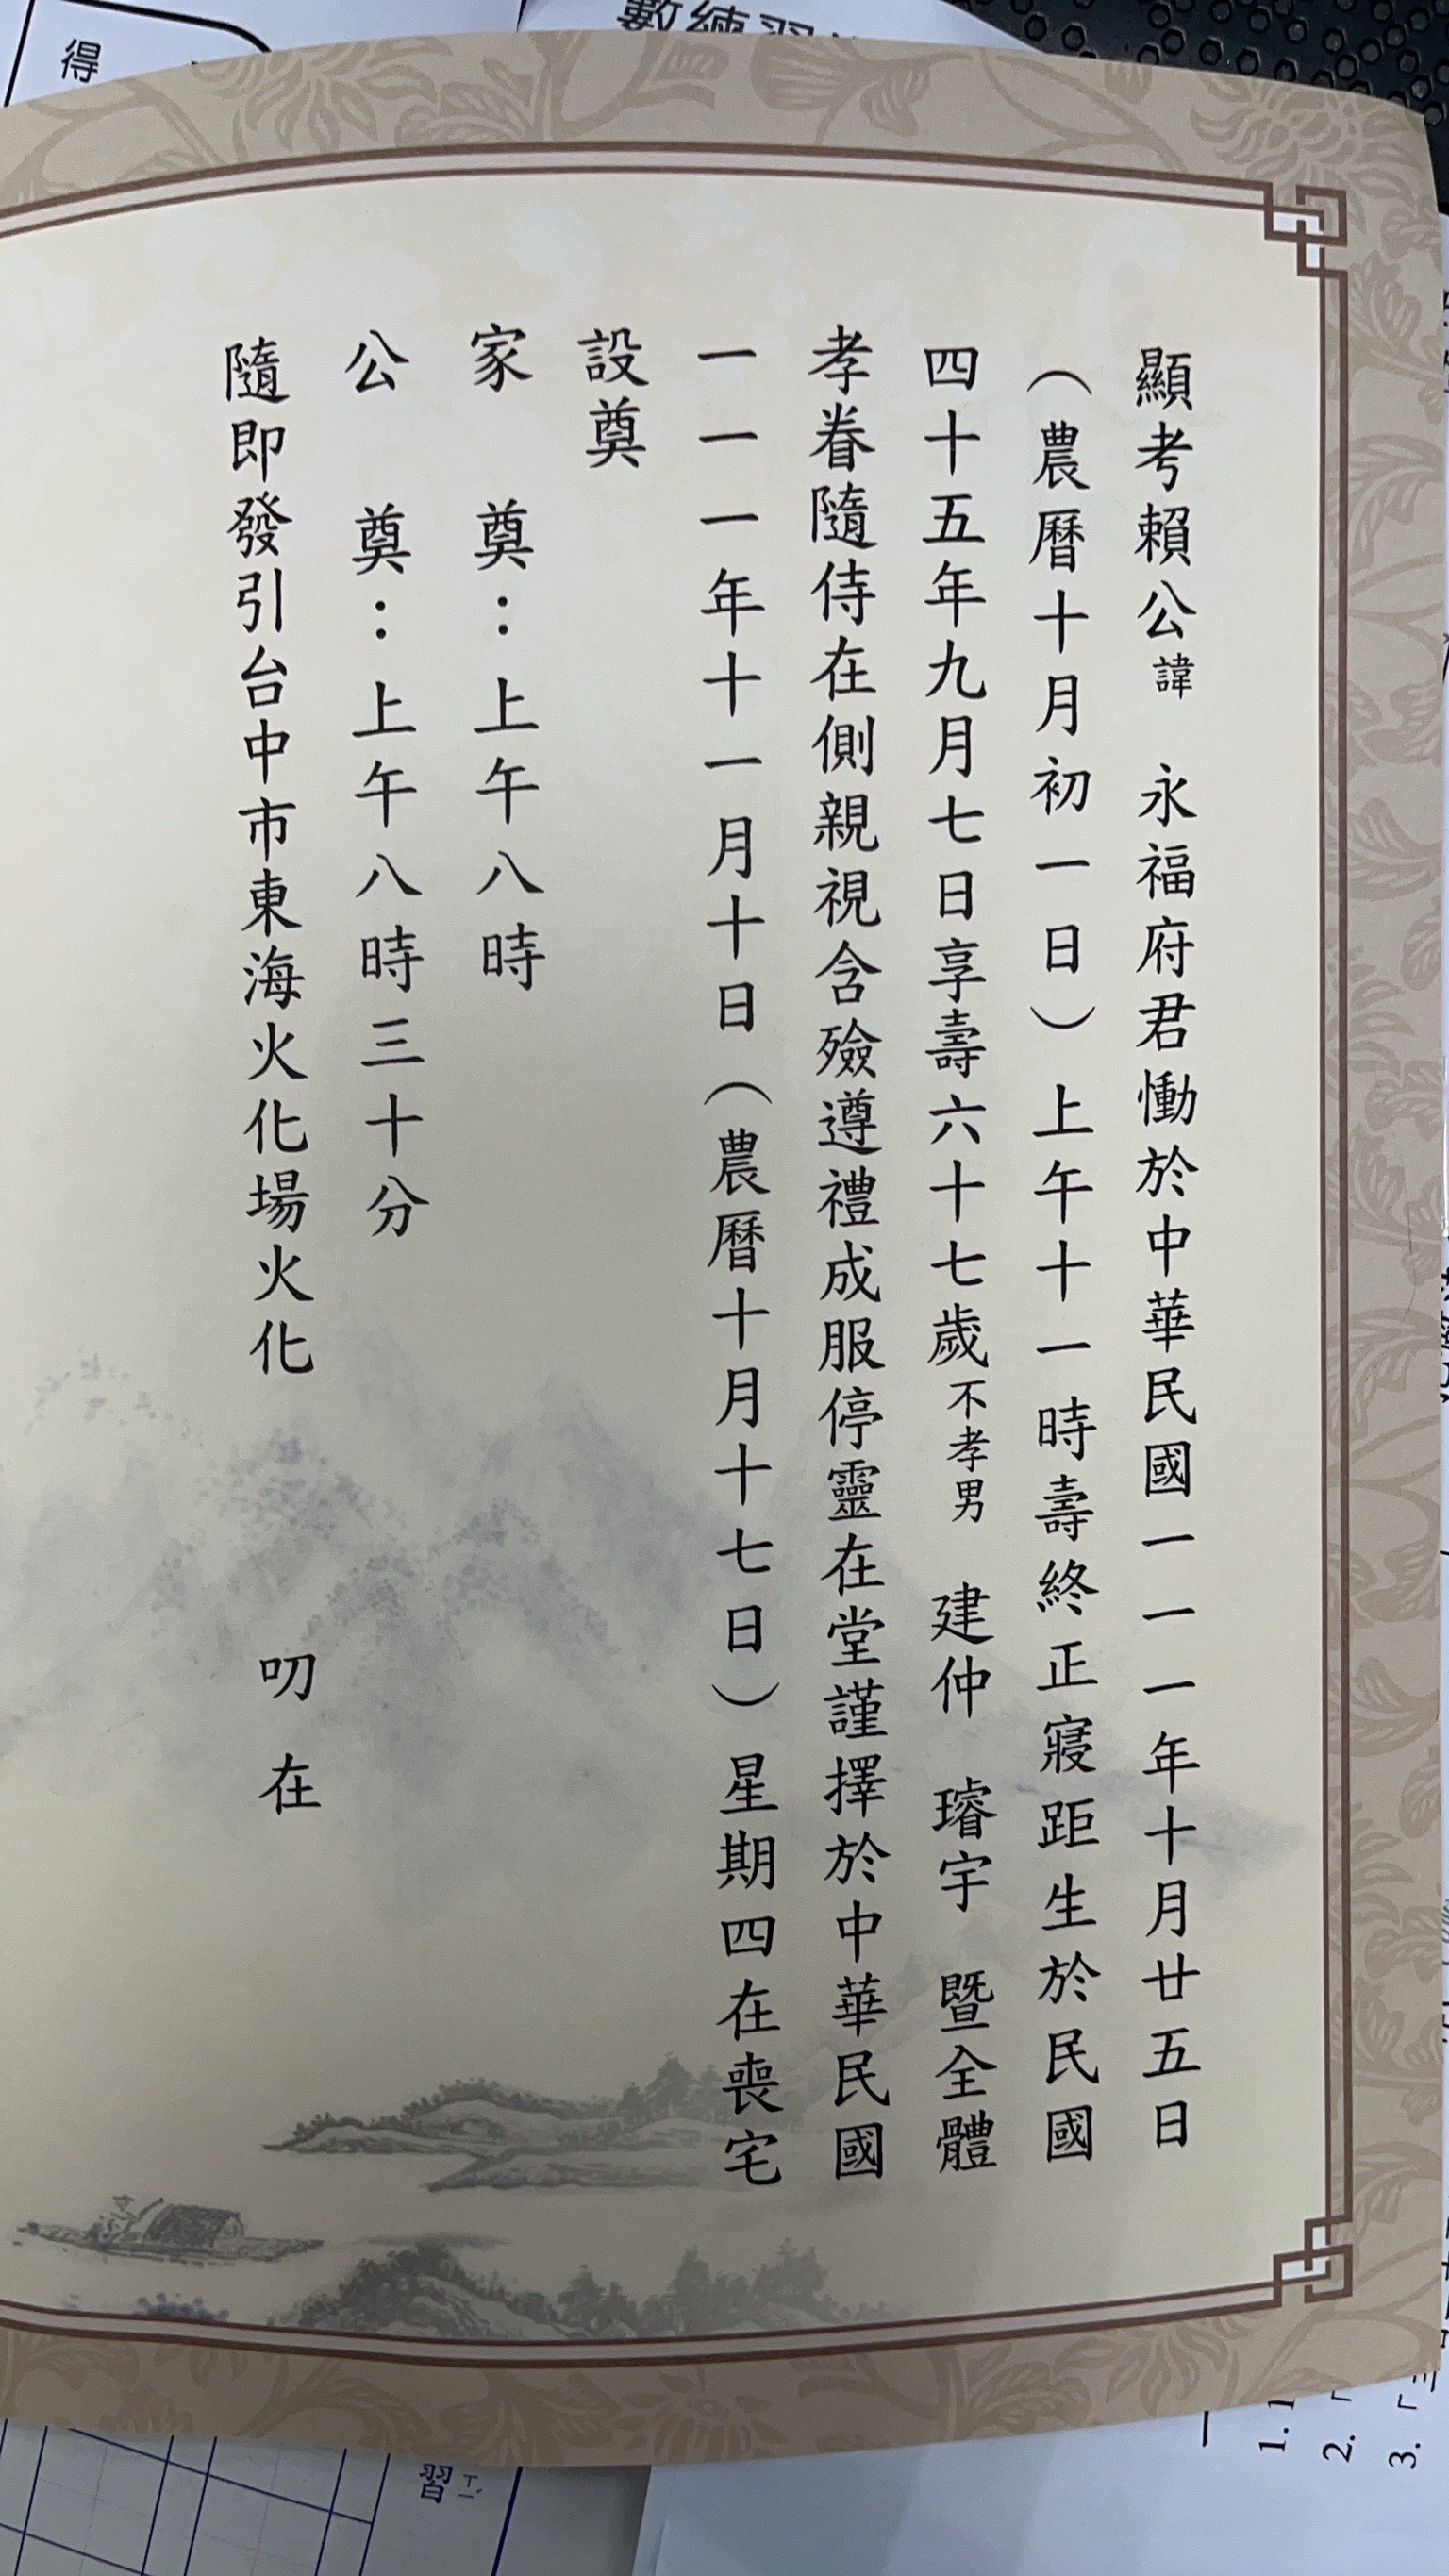 顯考賴公諱 永福府君慟於中華民國一一一年十月廿五日
（農曆十月初一日）上午十一時壽終正寢距生於民國
四十五年九月七日享壽六十七歲不孝男 建仲 璿宇 暨全體
孝眷隨侍在側親視含殮遵禮成服停靈在堂謹擇於中華民國
一一一年十一月十日（農曆十月十七日）星期四在喪宅
設奠
家 奠：上午八時
公 奠：上午八時三十分
隨即發引台中市東海火化場火化 叨在
得
數練習
習
1. 1
2. 「
3. 「三